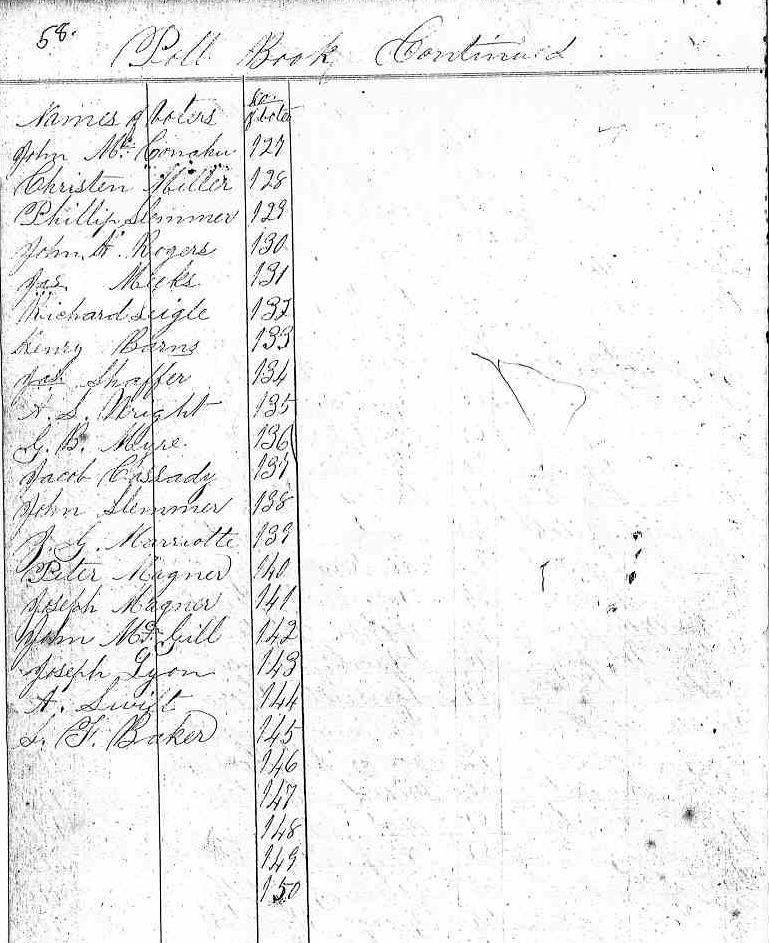 58.
Poll Book Continued
Names of voters No. of voter
John Mc. Conahu 127
Christen Miller 128
Phillip Slemmer 129
John H. Rogers 130
Jas. Meeks 131
Richard Seigle 132
Henry Barns 133
Jas. Shaffer 134
A. S. Wright 135
G. B. Myre. 136
Jacob Cassady 137
John Slemmer 138
J. G. Marriotte 139
Peter Magner 140
Joseph Magner 141
John McGill 142
Joseph Lyon 143
A. Swift 144
S. F. Baker 145
146
147
148
149
150